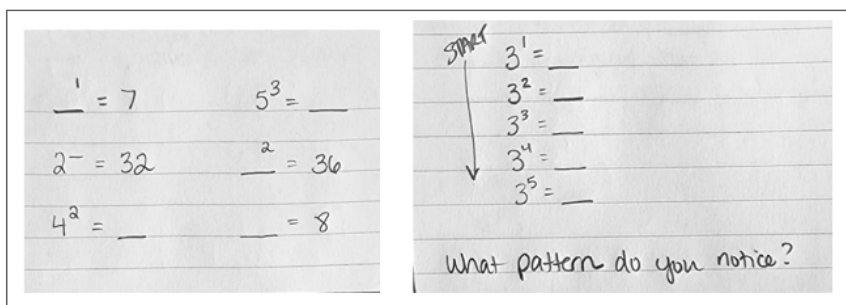 __¹ = 7
5³ = __
2⁻ = 32
__² = 36
4² = __
__ = 8
START
3¹ = __
3² = __
3³ = __
3⁴ = __
3⁵ = __
What pattern do you notice?